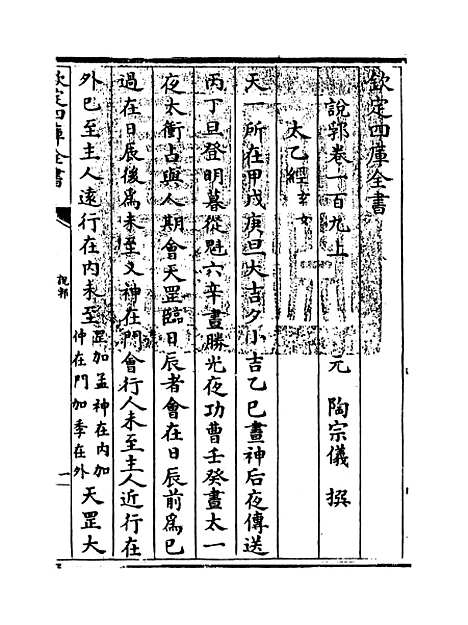 欽定四庫全書
說郛卷一百九上
元 陶宗儀 撰
太乙經 玄女
天一所在甲戊庚旦大吉夕小吉乙巳晝神后夜傳送
丙丁旦登明暮從魁六辛晝勝光夜功曹壬癸晝太一
夜太衝占與人期會天罡臨日辰者會在日辰前為巳
過在日辰後為未至又神在門會行人未至主人近行在
外巳至主人遠行在内未至 罡加孟神在内加仲在門加季在外 天罡大
欽定四庫全書
說郛
一